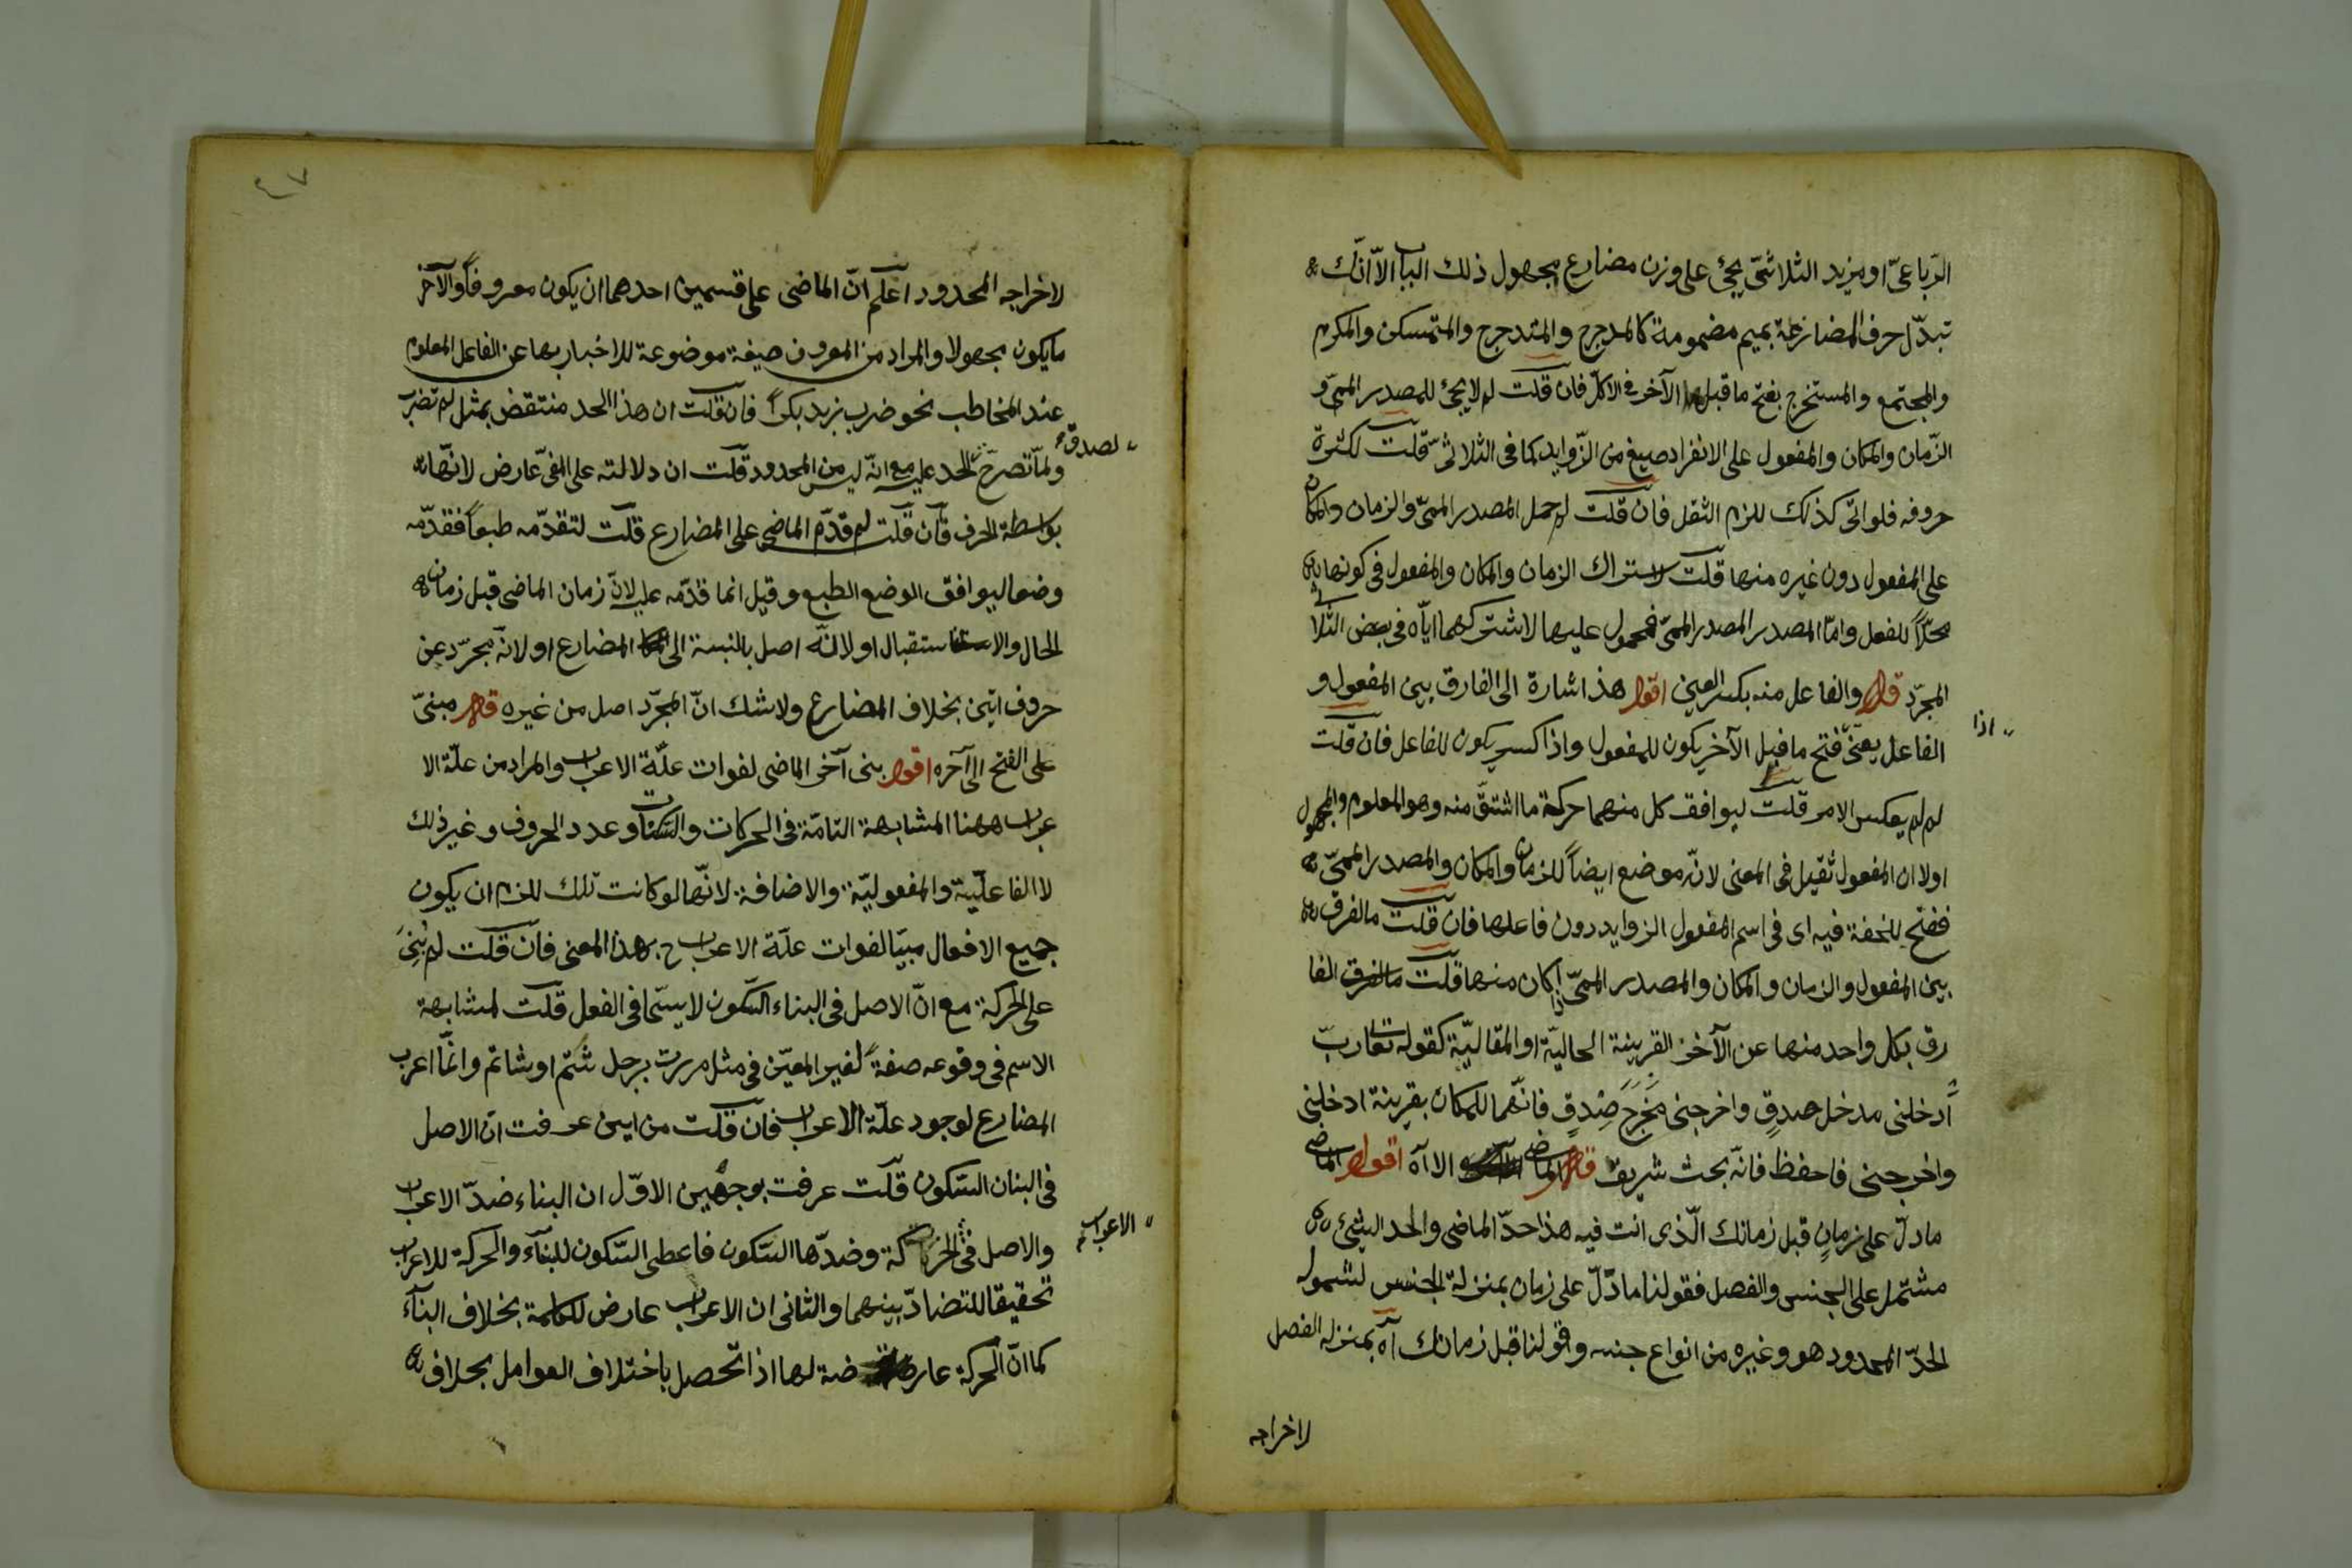 الرباعىّ او مزيد الثلاثىّ يجئ على وزن مضارع مجهول ذلك الباب الاّ انّك
تبدّل حرف المضارعة بميم مضمومة كالمدحرج والمتدحرج والمتمسكن والمكرم
والمجتمع والمستخرج بفتح ما قبل الآخر فى الاكلّ فان قلت لم لا يجئ للمصدر الميمىّ و
الزّمان والمكان والمفعول على الانفراد صيغ من الزّوايد كما فى الثلاثىّ قلت لكثرة
حروفه فلو اتىّ كذلك للزم الثقل فان قلت لم حمل المصدر الميمىّ والزمان والمكان
على المفعول دون غيره منها قلت لاشتراك الزمان والمكان والمفعول فى كونها
محلّاً للفعل وامّا المصدر المصدر الميمىّ فمحمول عليها لاشتراكهما ايّاه فى بعض الثلا
المجرّد قال والفاعل منه بكسر العين اقول هذا اشارة الى الفارق بين المفعول و
الفاعل يعنىّ فتح ما قبل الآخر يكون للمفعول واذا كسر يكون للفاعل فان قلت
اذا
لم لم يعكس الامر قلت ليوافق كل منهما حركة ما اشتقّ منه وهو المعلوم والمجهول
اولا ان المفعول ثقيل فى المعنى لانّه موضع ايضاً للزمان والمكان والمصدر الميمىّ
ففتح للخفة فيه اى فى اسم المفعول الزوايد دون فاعلها فان قلت ما الفرق
بين المفعول والزمان والمكان والمصدر الميمىّ اذا كان منها قلت الفا
رق بكل واحد منها عن الآخر القرينة الحاليّة او المقاليّة كقوله تعا ربّ
ادخلنى مدخل صدقٍ واخرجنى مخرَجَ صِدقٍ فانّهما للمكان بقرينة ادخلنى
واخرجنى فاحفظ فانّه بحث شريف قال الماضى الا آه اقول الماضى
ما دلّ على زمانٍ قبل زمانك الّذى انت فيه هذا حدّ الماضى والحد الشئ
مشتمل على الجنس والفصل فقولنا ما دّلّ على زمان بمنزلة الجنس لشموله
الحدّ المحدود هو وغيره من انواع جنسه وقولنا قبل زمانك آه بمنزله الفصل
لاخراجه
٤٧
لاخراجه المحدود اعلم انّ الماضى على قسمين احدهما ان يكون معروفاً والآخر
ما يكون مجهولا والمراد من المعروف صيغة موضوعة للاخبار بها عن الفاعل المعلوم
عند المخاطب نحو ضرب زيد بكراً فان قلت ان هذا الحد منتقض بمثل لم تضرب
لصدق
ولمّا تصرّح الحد عليه مع انّه ليس من المحدود قلت ان دلالته على المضىّ عارض لانّها
بواسطة الحرف فان قلت لم قدّم الماضى على المضارع قلت لتقدّمه طبعاً فقدّمه
وضعا ليوافق الوضع الطبع وقيل انما قدّمه عليه لانّ زمان الماضى قبل زمان
الحال والاستقبال او لانّه اصل بالنسبة الى المضارع او لانّه مجرّد عن
حروف اتين بخلاف المضارع ولا شك انّ المجرّد اصل من غيره قال مبنىّ
على الفتح الى آخره اقول بنى آخر الماضى لفوات علّة الاعراب والمراد من علّة الا
عراب ههنا المشابهة التامّة فى الحركات والسّكنات وعدد الحروف وغير ذلك
لا الفاعليّة والمفعوليّة والاضافة لانّها لو كانت تلك للزم ان يكون
جميع الافعال مبيّا لفوات علّة الاعراب ح بهذا المعنى فان قلت لم بُنِىَ
على الحركة مع انّ الاصل فى البناء السّكون لا سيّما فى الفعل قلت لمشابهة
الاسم فى وقوعه صفةً لغير المعيّن فى مثل مررت برجل شتم او شاتم وانّما اعرب
المضارع لوجود علّة الاعراب فان قلت من اين عرفت ان الاصل
فى البنان السّكون قلت عرفت بوجهين الاوّل ان البناء ضدّ الاعراب
والاصل فى الحركة وضدّها السّكون فاعطى السّكون للبنآء والحركة للاعراب
الاعراب
تحقيقا للتضادّ بينهما والثانى ان الاعراب عارض للكلمة بخلاف البنآء
كما انّ الحركة عارضة لها اذا تحصل باختلاف العوامل بخلاف